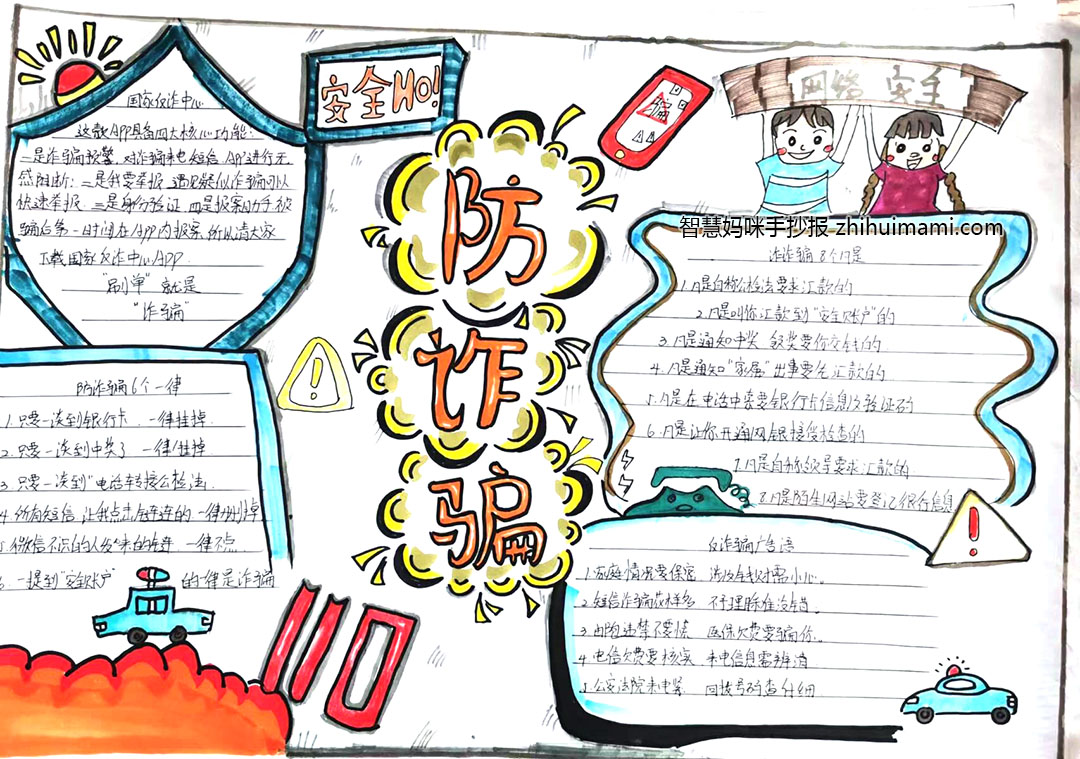 安全HO!
国家反诈中心
这款APP具备四大核心功能:
一是诈骗预警,对诈骗来电短信、APP进行无
感阻断;二是我要举报,遇见疑似诈骗可以
快速举报,三是身份验证,四是报案助手,被
骗后第一时间在APP内报案,所以请大家
下载国家反诈中心APP
"刷单"就是
"诈骗"
防诈骗6个一律
1.只要一谈到银行卡,一律挂掉
2.只要一谈到中奖了,一律挂掉
3.只要一谈到"电话转接公检法
4.所有短信,让我点击链接的,一律删掉
5.微信不识的人发来的链接,一律不点
6.一提到"安全账户"的一律是诈骗
防
诈
骗
110
骗
网络安全
智慧妈咪手抄报 zhihuimami.com
诈骗8个凡是
1.凡是自称公检法要求汇款的
2.凡是叫你汇款到"安全账户"的
3.凡是通知中奖、领奖要你交钱的
4.凡是通知"家属"出事要先汇款的
5.凡是在电话中索要银行卡信息及验证码
6.凡是让你开通网银接受检查的
7.凡是自称领导要求汇款的
8.凡是陌生网站要登记银行信息
反诈骗广告语
1.家庭情况要保密 涉及钱财需小心。
2.短信诈骗花样多 不予理睬准没错。
3.
4.电信欠费要核实 来电信息需辨清
5.公安法院来电紧 回拨号码查仔细